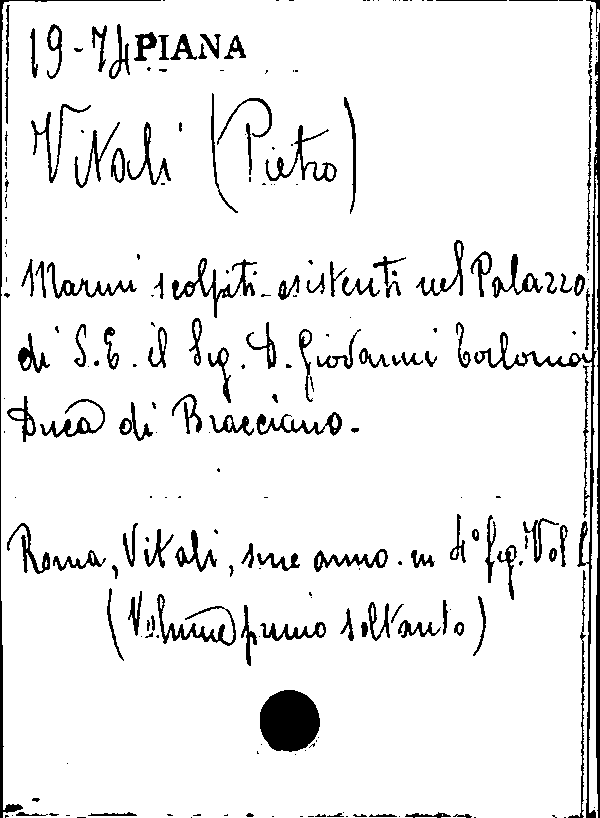 19-74 PIANA
Vitali (Pietro)
Marmi scolpiti esistenti nel Palazzo
di S.E. il Sig. D. Giovanni Torlonia
Duca di Bracciano.
Roma, Vitali, sine anno. in 4° fig. Vol I
(Volume primo soltanto)